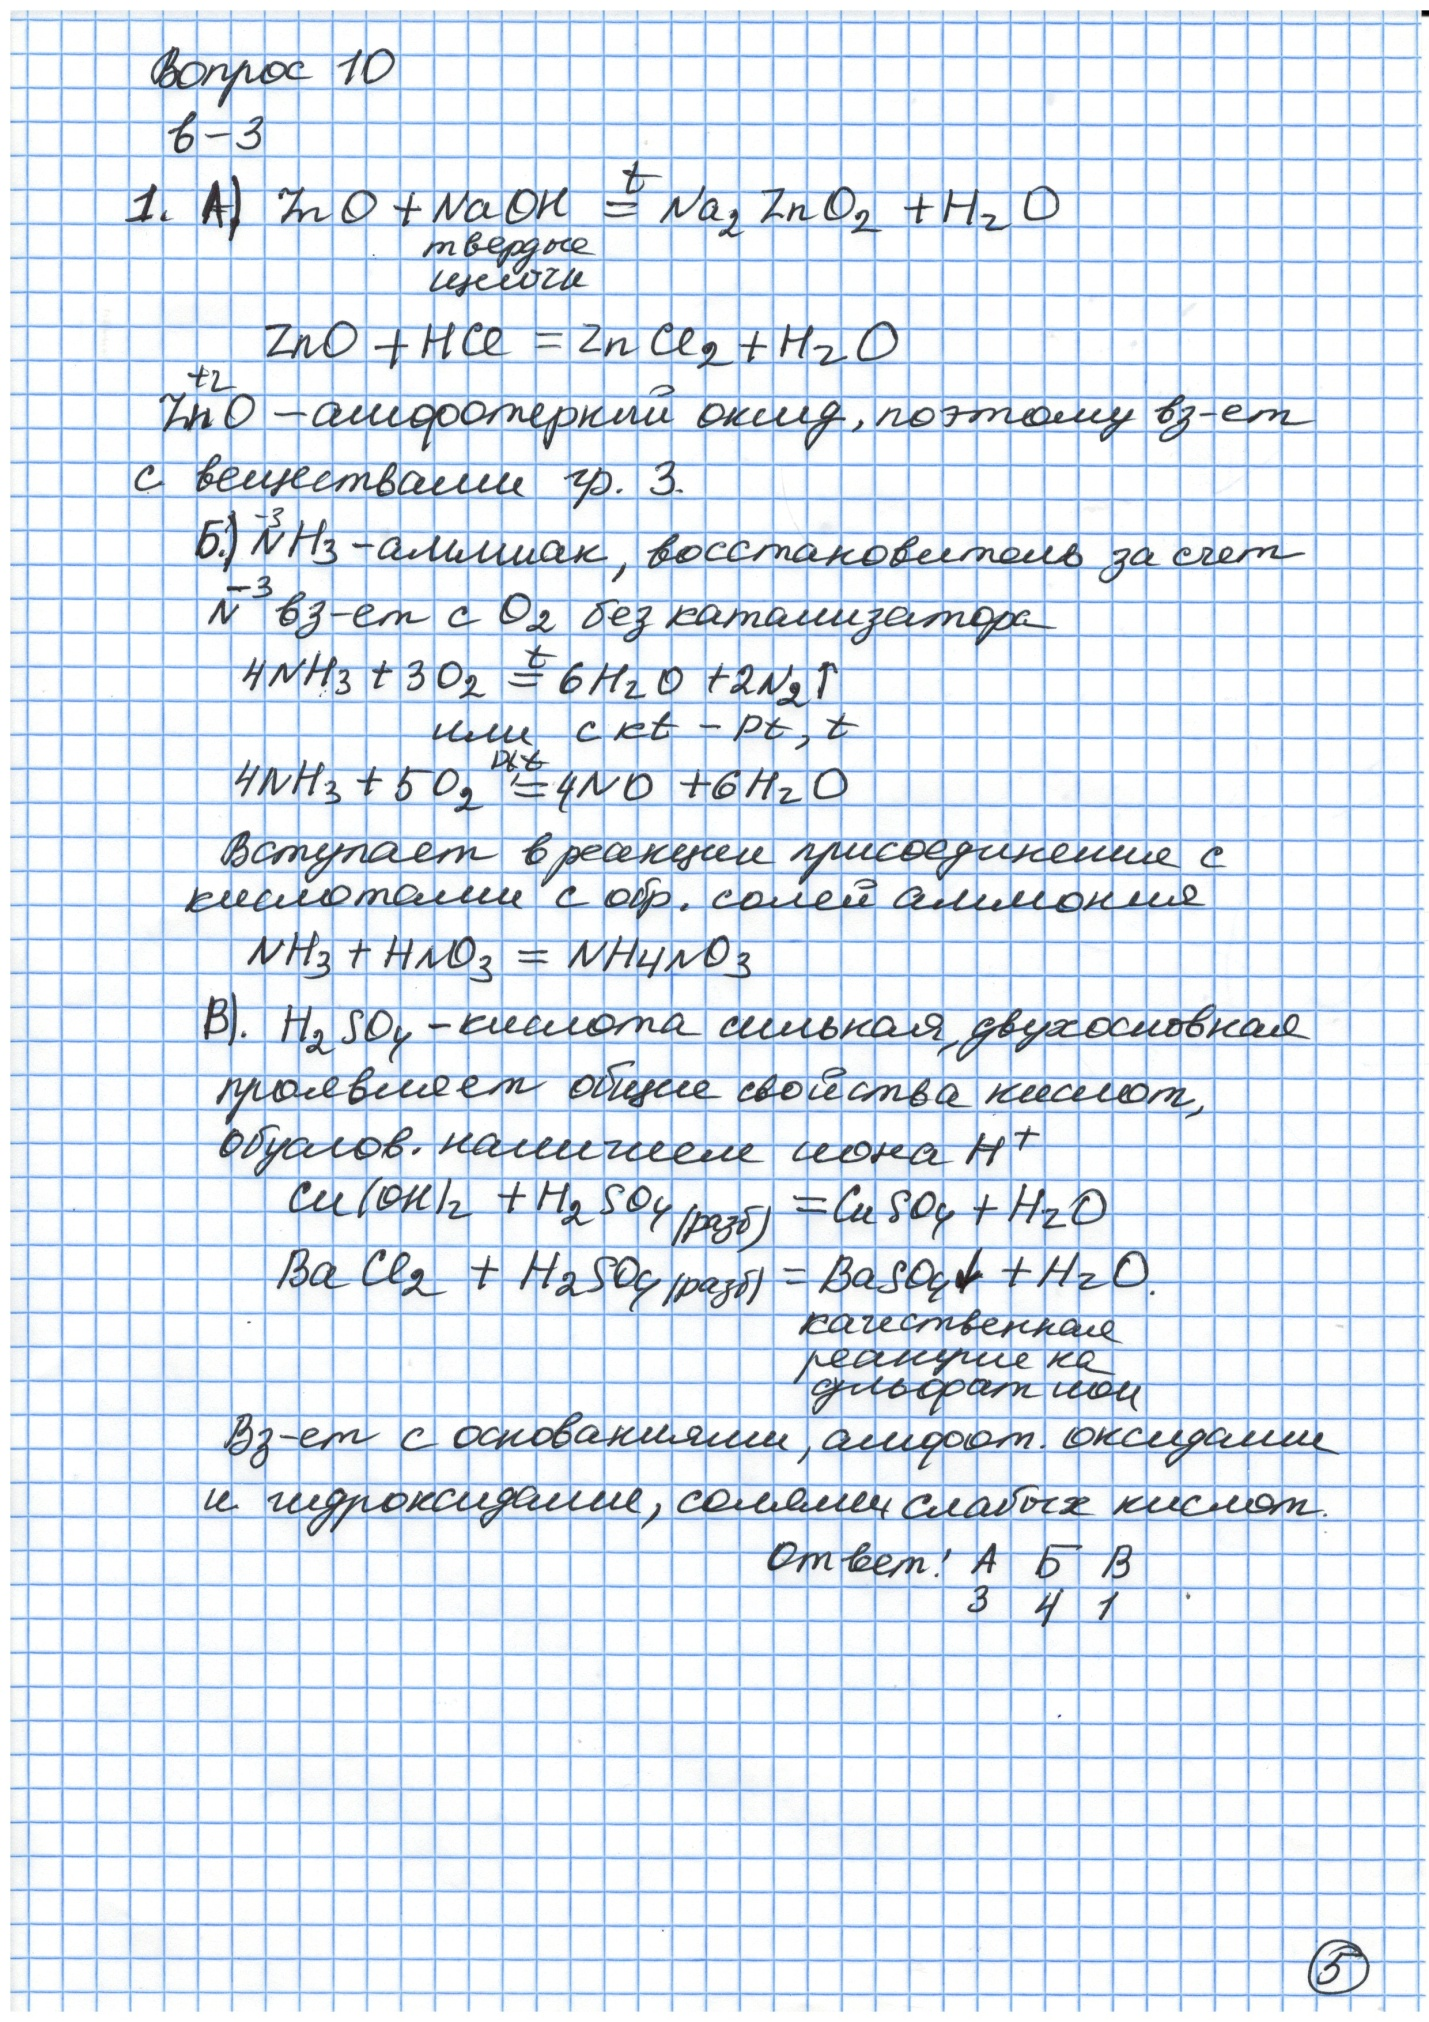 Вопрос 10
в-3
1. А) ZnO + NaOH =ᵗ Na₂ZnO₂ + H₂O
твердые
щелочи
ZnO + HCl = ZnCl₂ + H₂O
+2
ZnO – амфотерный оксид, поэтому вз-ет
с веществами гр. 3.
Б.) N⁻³H₃ – аммиак, восстановитель за счет
N⁻³ вз-ет с O₂ без катализатора
4NH₃ + 3O₂ =ᵗ 6H₂O + 2N₂↑
или с kt – Pt, t
4NH₃ + 5O₂ =ᴾᵗ,ᵗ 4NO + 6H₂O
Вступает в реакции присоединение с
кислотами с обр. солей аммония
NH₃ + HNO₃ = NH₄NO₃
В). H₂SO₄ – кислота сильная, двухосновная
проявляет общие свойства кислот,
обуслов. наличием иона H⁺
Cu(OH)₂ + H₂SO₄ (разб) = CuSO₄ + H₂O
BaCl₂ + H₂SO₄ (разб) = BaSO₄↓ + H₂O.
качественная
реакция на
сульфат ион
Вз-ет с основаниями, амфот. оксидами
и гидроксидами, солями слабых кислот.
Ответ: А Б В
3 4 1
5